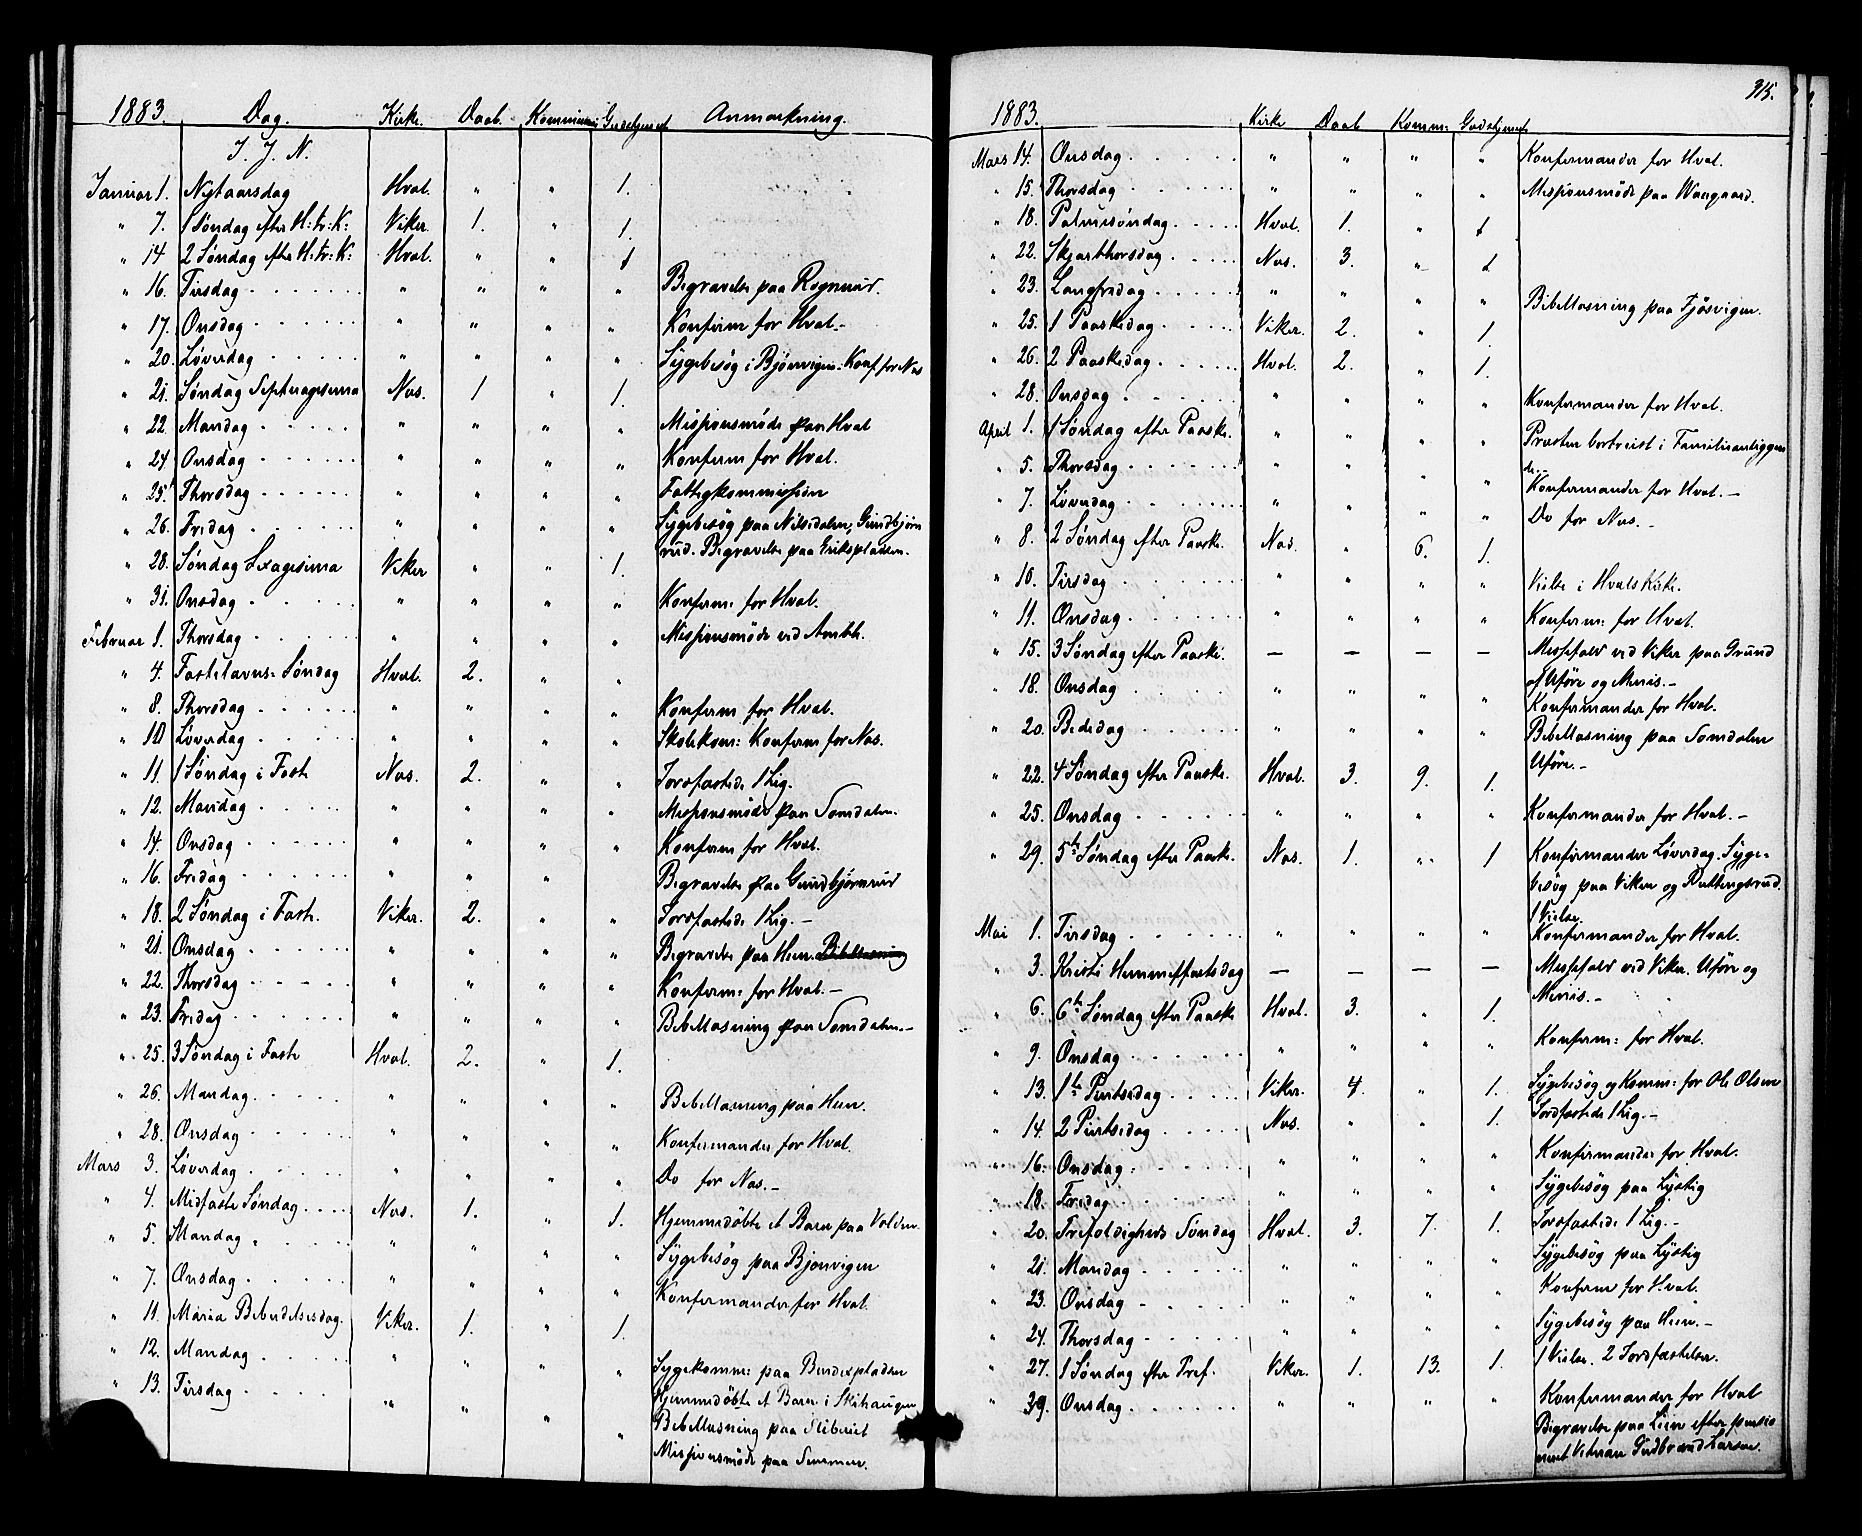 1883. Dag. Kirke. Daab. Kommunion Gudstjenest Anmærkning.
I. J. N.
Januar 1. Nytaarsdag Hval. " " 1.
" 7. 1 Søndag efter H: tr: K: Viker 1. " 1.
" 14 2 Søndag efter H: tr: K: Hval. " " 1
" 16. Tirsdag " " " " Begravelse paa Rognerud.
" 17. Onsdag " " " " Konfirm for Hval.-
" 20. Løverdag " " " " Sygebesøg i Bjønvigen. Konf for Næs
" 21. Søndag Septuagesima Næs. 1 " 1.
" 22. Mandag " " " " Missionsmøde paa Hval
" 24. Onsdag " " " " Konfirm for Hval.
" 25. Thorsdag " " " " Fattigkommission
" 26. Fredag " " " " Sygebesøg paa Nilsedalen, Gundbjørn
rud. Begravelse paa Erikspladsen.
" 28. Søndag Sexagesima Viker " " 1.
" 31. Onsdag " " " " Konfirm: for Hval.
Februar 1. Thorsdag " " " " Missionsmøde ved
" 4. Fastelavns: Søndag Hval. 2. " "
" 8. Thorsdag " " " " Konfirm for Hval.
" 10 Løverdag " " " " Skolekom: Konfirm for Næs.
" 11. 1 Søndag i Faste Næs. 2. " " Jordfæstede 1 Lig.
" 12. Mandag " " " " Missionsmøde paa Somdalen.
" 14. Onsdag " " " " Konfirm for Hval.
" 16. Fredag " " " " Begravelse paa Gundbjørnrud
" 18. 2 Søndag i Faste. Viker. 2. " " Jordfæstede 1 Lig.-
" 21. Onsdag " " " " Begravelse paa Heen. Bibellæsning
" 22. Thorsdag " " " " Konfirm: for Hval.-
" 23. Fredag " " " " Bibellæsning paa Somdalen.-
" 25. 3 Søndag i Faste Hval. 2. " 1.
" 26. Mandag " " " " Bibellæsning paa Heen.
" 28. Onsdag " " " " Konfirmander for Hval.
Mars 3. Løverdag " " " " Do for Næs.-
" 4. Midfaste Søndag Næs. 1. " 1. Hjemmedøbte et Barn paa Volden.
" 5. Mandag " " " " Sygebesøg paa Bjønvigen
" 7. Onsdag " " " " Konfirmander for Hval.
" 11. Mariæ Bebudelsesdag. Viker. 1. " 1.
" 12. Mandag " " " " Sygekomm: paa Bendixpladsen
" 13. Tirsdag " " " " Hjemmedøbte et Barn i Skihaugen
Bibellæsning paa
Missionsmøde paa Semmen.
915.
1883. Kirke Daab Komm: Gudstjeneste
Mars 14. Onsdag " " " " Konfirmander for Hval.
" 15. Thorsdag " " " " Missionsmøde paa Waagaard.
" 18. Palmesøndag Hval. 1. " 1
" 22. Skjærthorsdag Næs. 3. " 1
" 23. Langfredag " " " " Bibellæsning paa Fjøsvigen.
" 25. 1 Paaskedag Viker. 2. " 1.
" 26. 2 Paaskedag Hval. 2. " 1.
" 28. Onsdag " " " " Konfirmander for Hval.
April 1. 1 Søndag efter Paaske. " " " " Præsten bortreist i Familieanliggen
de.-
" 5. Thorsdag " " " " Konfirmander for Hval.-
" 7. Løverdag " " " " Do for Næs.-
" 8. 2 Søndag efter Paaske. Næs. " 6. 1.
" 10. Tirsdag " " " " Vielse i Hvals Kirke.
" 11. Onsdag " " " " Konfirm: for Hval.
" 15. 3 Søndag efter Paaske. — — — — Messefald ved Viker paa Grund
af Uføre og Menis.-
" 18. Onsdag " " " " Konfirmander for Hval.
" 20. Bededag " " " " Bibellæsning paa Somdalen
Uføre.-
" 22. 4 Søndag efter Paaske. Hval. 3. 9. 1.
" 25. Onsdag " " " " Konfirmander for Hval.-
" 29. 5te Søndag efter Paaske. Næs. 1. " 1 Konfirmander Løverdag. Syge-
besøg paa Viker og
1 Vielse.
Mai 1. Tirsdag " " " " Konfirmander for Hval.
" 3. Kristi Himmelfartsdag — — — — Messefald ved Viker. Uføre og
Menis.-
" 6. 6te Søndag efter Paaske Hval. 3. " 1.
" 9. Onsdag " " " " Konfirm: for Hval.
" 13. 1te Pintsedag Viker. 4. " 1. Sygebesøg og Komm: for Ole Olsen
" 14. 2 Pintsedag Næs. " " 1. Jordfæstede 1 Lig.-
" 16. Onsdag " " " " Konfirmander for Hval.
" 18. Fredag " " " " Sygebesøg paa Lystig
" 20. Trefoldigheds Søndag Hval. 3. 7. 1. Jordfæstede 1 Lig.-
" 21. Mandag " " " " Sygebesøg paa Lystig
" 23. Onsdag " " " " Konfirm for Hval.
" 24. Thorsdag " " " " Sygebesøg paa Heen.-
" 27. 1 Søndag efter Tref. Viker. 1. 13. 1. 1 Vielse. 2 Jordfæstelser.
" 30. Onsdag " " " " Konfirmander for Hval
Begravelse paa Lien efter pensio
neret Gudbrand Larsen.